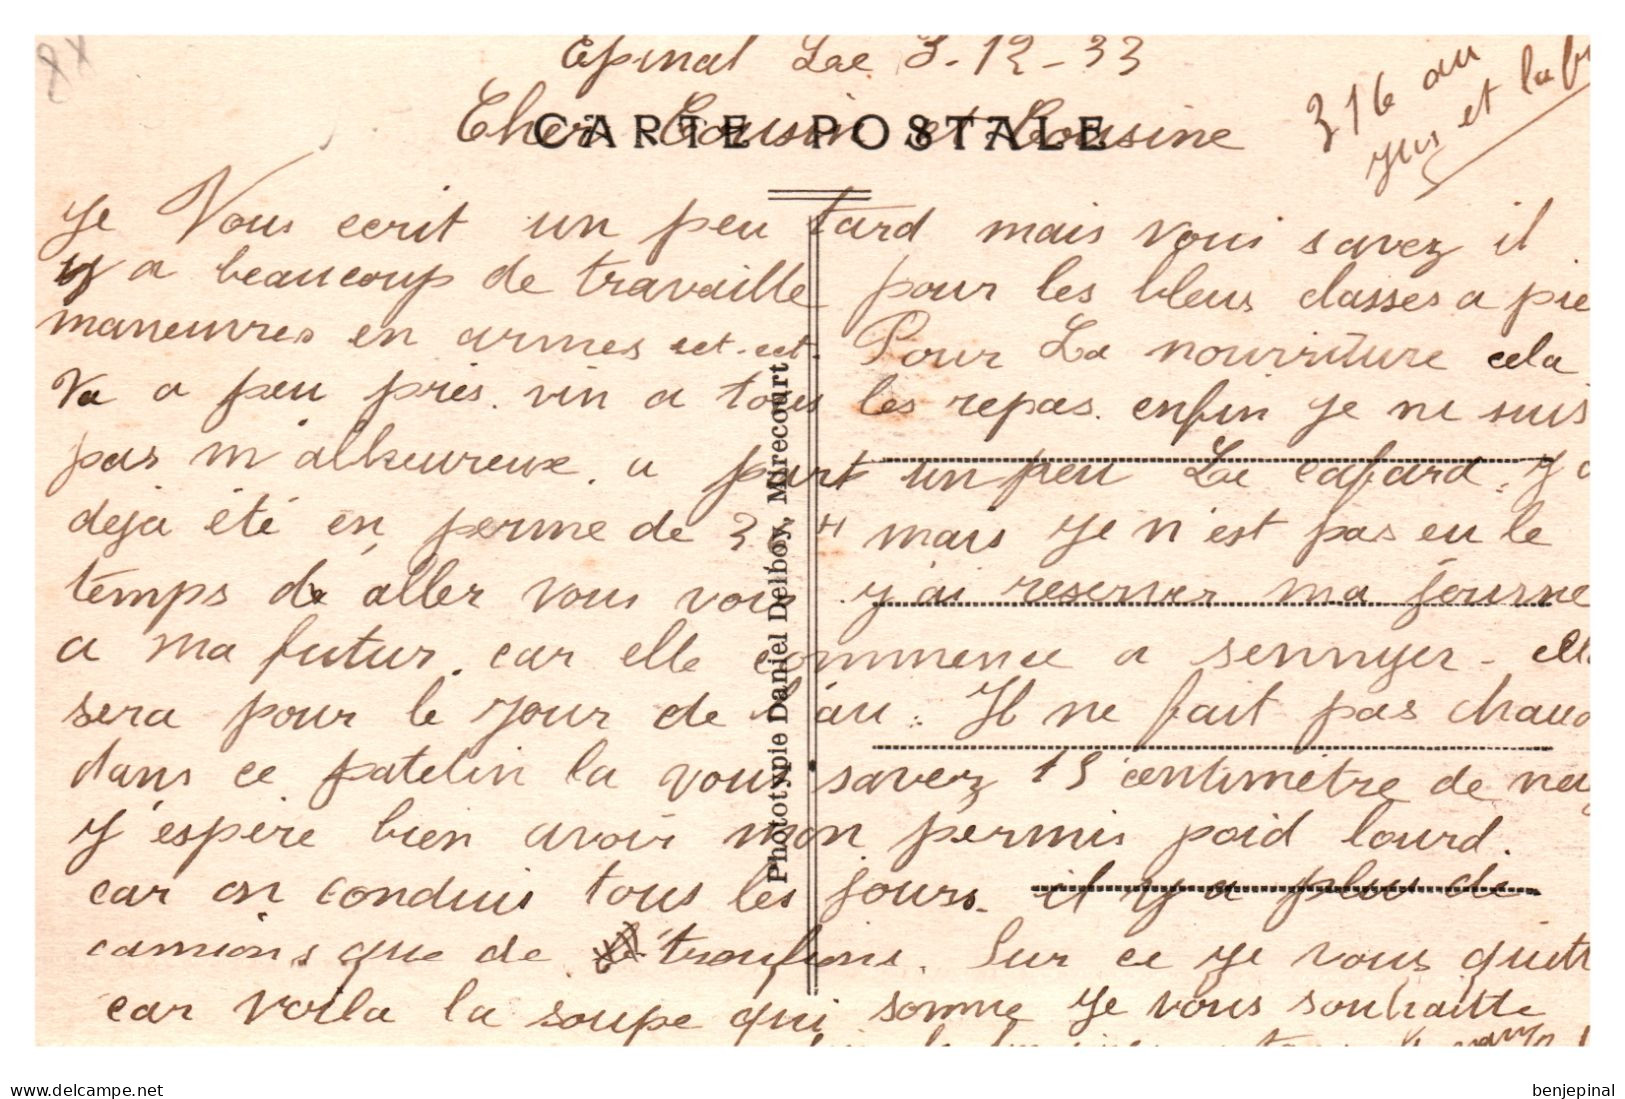 Epinal Le 3-12-33
Cher Cousin et Cousine
CARTE POSTALE
316 au
jus et la
Je Vous ecrit un peu tard mais vous savez il
y a beaucoup de travaille pour les bleus classes a pie
maneuvres en armes ect-ect. Pour La nourriture cela
Va a peu près. vin a tous les repas. enfin je ne suis
pas m'alheureux. a part un peu Le cafard. J'
deja été en perme de 24 H mais Je n'est pas eu le
temps de aller vous voir j'ai reserver ma journe
a ma futur. car elle commence a sennyer - elle
sera pour le jour de l'an. Il ne fait pas chaud
dans ce patelin la vous savez 15 centimètre de neig
J'espère bien avoir mon permis poid lourd.
car on conduis tous les jours. il y a plus de
camions que de troufions. Sur ce je vous quitt
car voila la soupe qui sonne Je vous souhaitte
Phototypie Daniel Delboy, Mirecourt
www.delcampe.net
benjepinal